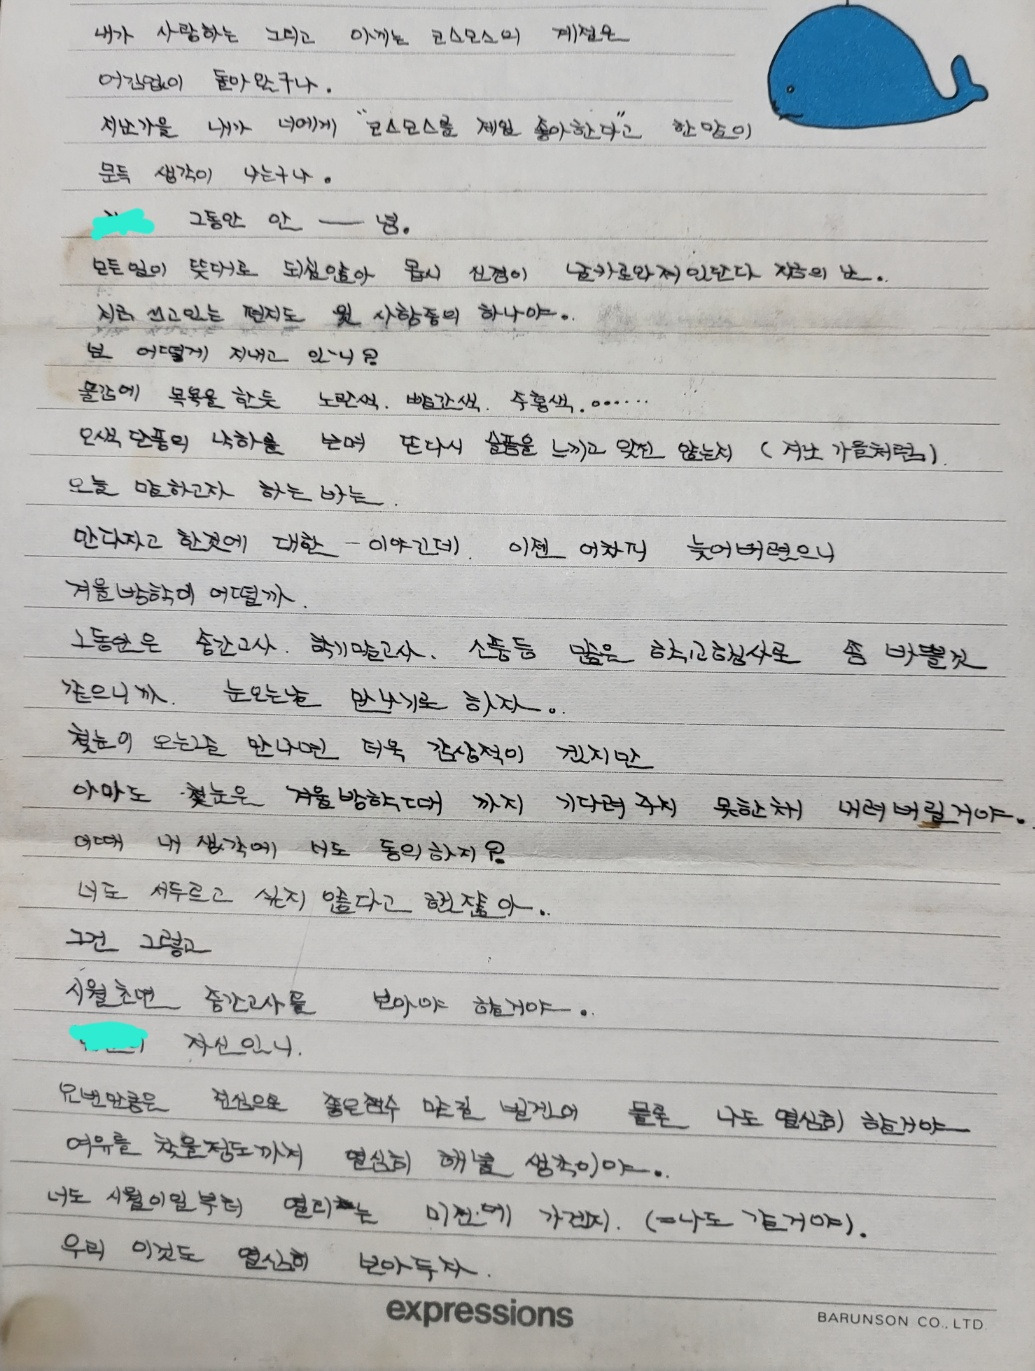 내가 사랑하는 그리고 아끼는 코스모스의 계절은
어김없이 돌아왔구나.
지난가을 내가 너에게 "코스모스를 제일 좋아한다"고 한 말이
문득 생각이 나는구나.
그동안 안 — 녕.
모든일이 뜻대로 되질않아 몹시 신경이 날카로와져 있단다 지금의 난..
지금 쓰고있는 편지도 윗 사항중의 하나야..
넌 어떻게 지내고 있니?
물감에 목욕을 한듯 노란색. 빨간색. 주황색.......
오색 단풍의 낙하를 보며 또다시 슬픔을 느끼고 있진 않는지 (지난 가을처럼).
오늘 말하고자 하는 바는.
만나자고 한것에 대한 - 이야긴데. 이젠 어차피 늦어버렸으니
겨울방학이 어떨까.
그동안은 중간고사. 학기말고사. 소풍등 많은 학교행사로 좀 바쁠것
같으니까. 눈오는날 만나기로 하자..
첫눈이 오는날 만나면 더욱 감상적이 겠지만
아마도 첫눈은 겨울방학때 까지 기다려 주지 못한채 내려 버릴거야.
어때 내 생각에 너도 동의하지?
너도 서두르고 싶지 않다고 했잖아..
그건 그렇고
시월초면 중간고사를 보아야 할거야..
자신있니.
요번만큼은 진심으로 좋은점수 맞길 빌겠어 물론 나도 열심히 할거야
여유를 찾을정도까지 열심히 해볼 생각이야..
너도 시월이일부터 열리는 미전에 가겠지. (=나도 갈거야).
우리 이것도 열심히 보아두자.
expressions
BARUNSON CO., LTD.